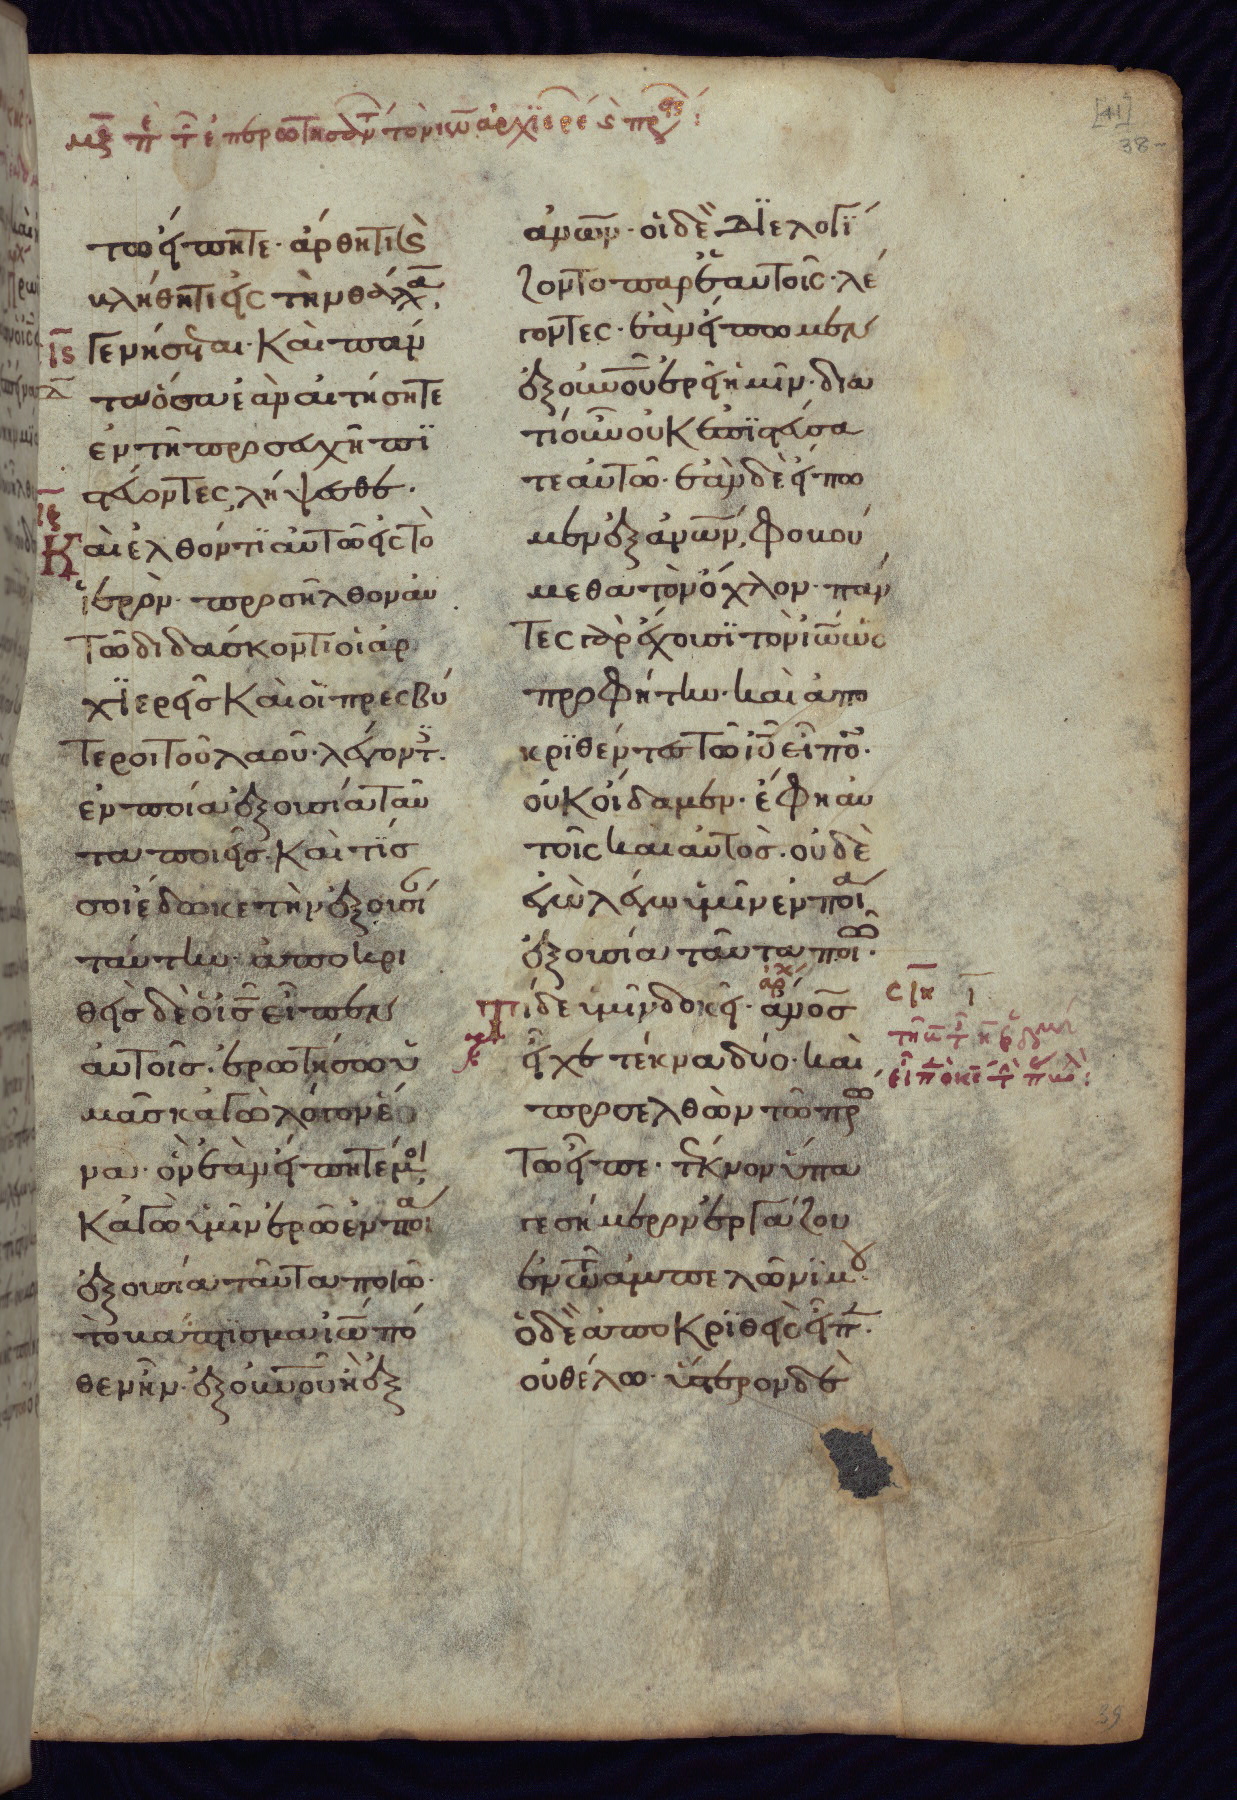 μζ π̅ τ̅ ἐπερωτησάντ τὸν ιῦ ἀρχϊερέ ς πρ
[41]
38
τω εἴπητε· ἄρθητι ς
κλήθητι εἰς τὴν θάλα
ις γενήσεται· Καὶ πάν
τα ὅσα ἐὰν αἰτήσητε
ἐν τῆ προσευχῆ πϊ
στεύοντες, λήψεσθε·
ιζ
Καὶ ἐλθόντϊ αὐτῶ εἰς τὸ
ἱερὸν· προσῆλθον αὐ
τῶ διδάσκοντι οἱ ἀρ
χϊερεῖς Καὶ οἱ πρεσβύ
τεροι τοῦ λαοῦ· λέγοντ·
ἐν ποία ἐξουσία ταῦ
τα ποιεῖς· Καὶ τίς
σοι ἔδωκε τὴν ἐξουσί
ταύτην· ἀποκρι
θεὶς δὲ ὁ ις εἶπεν
αὐτοῖς· ἐρωτήσω ὑ
μᾶς κἀγὼ λόγον ἕ
να· ὃν ἐὰν εἴπητέ μοι
Κἀγὼ ὑμῖν ἐρῶ ἐν ποία
ἐξουσία ταῦτα ποιῶ·
τὸ βάπτισμα ιω πό
θεν ἦν· ἐξ οὐνου ἢ ἐξ
ανων· οἱ δὲ διελογϊ
ζοντο παρ ἑαυτοῖς· λέ
γοντες· ἐὰν εἴπωμεν
ἐξ οὐνου ἐρεῖ ἡμῖν· δια
τί οὖν οὐκ ἐπϊστεύσα
τε αὐτῶ· ἐὰν δὲ εἴπω
μεν ἐξ ανων, φοβού
μεθα τὸν ὄχλον· πάν
τες γὰρ ἔχουσϊ τὸν ιω ὡς
προφήτην· καὶ ἀπο
κρϊθέντες τῶ ιυ εἶπον·
οὐκ οἴδαμεν· ἔφη αὐ
τοῖς καὶ αὐτὸς· οὐδὲ
ἐγὼ λέγω ὑμῖν ἐν ποία
ἐξουσία ταῦτα ποιῶ·
Τί δὲ ὑμῖν δοκεῖ· ανος
εἶχε τέκνα δύο· καὶ
προσελθὼν τῶ πρω
τω εἶπε· τέκνον ὕπα
γε σήμερον ἐργάζου
ἐν τῶ ἀμπελῶνϊ μου·
ὁ δὲ ἀποκρϊθεὶς εἶπ·
οὐ θέλω· ὕστερον δὲ
39